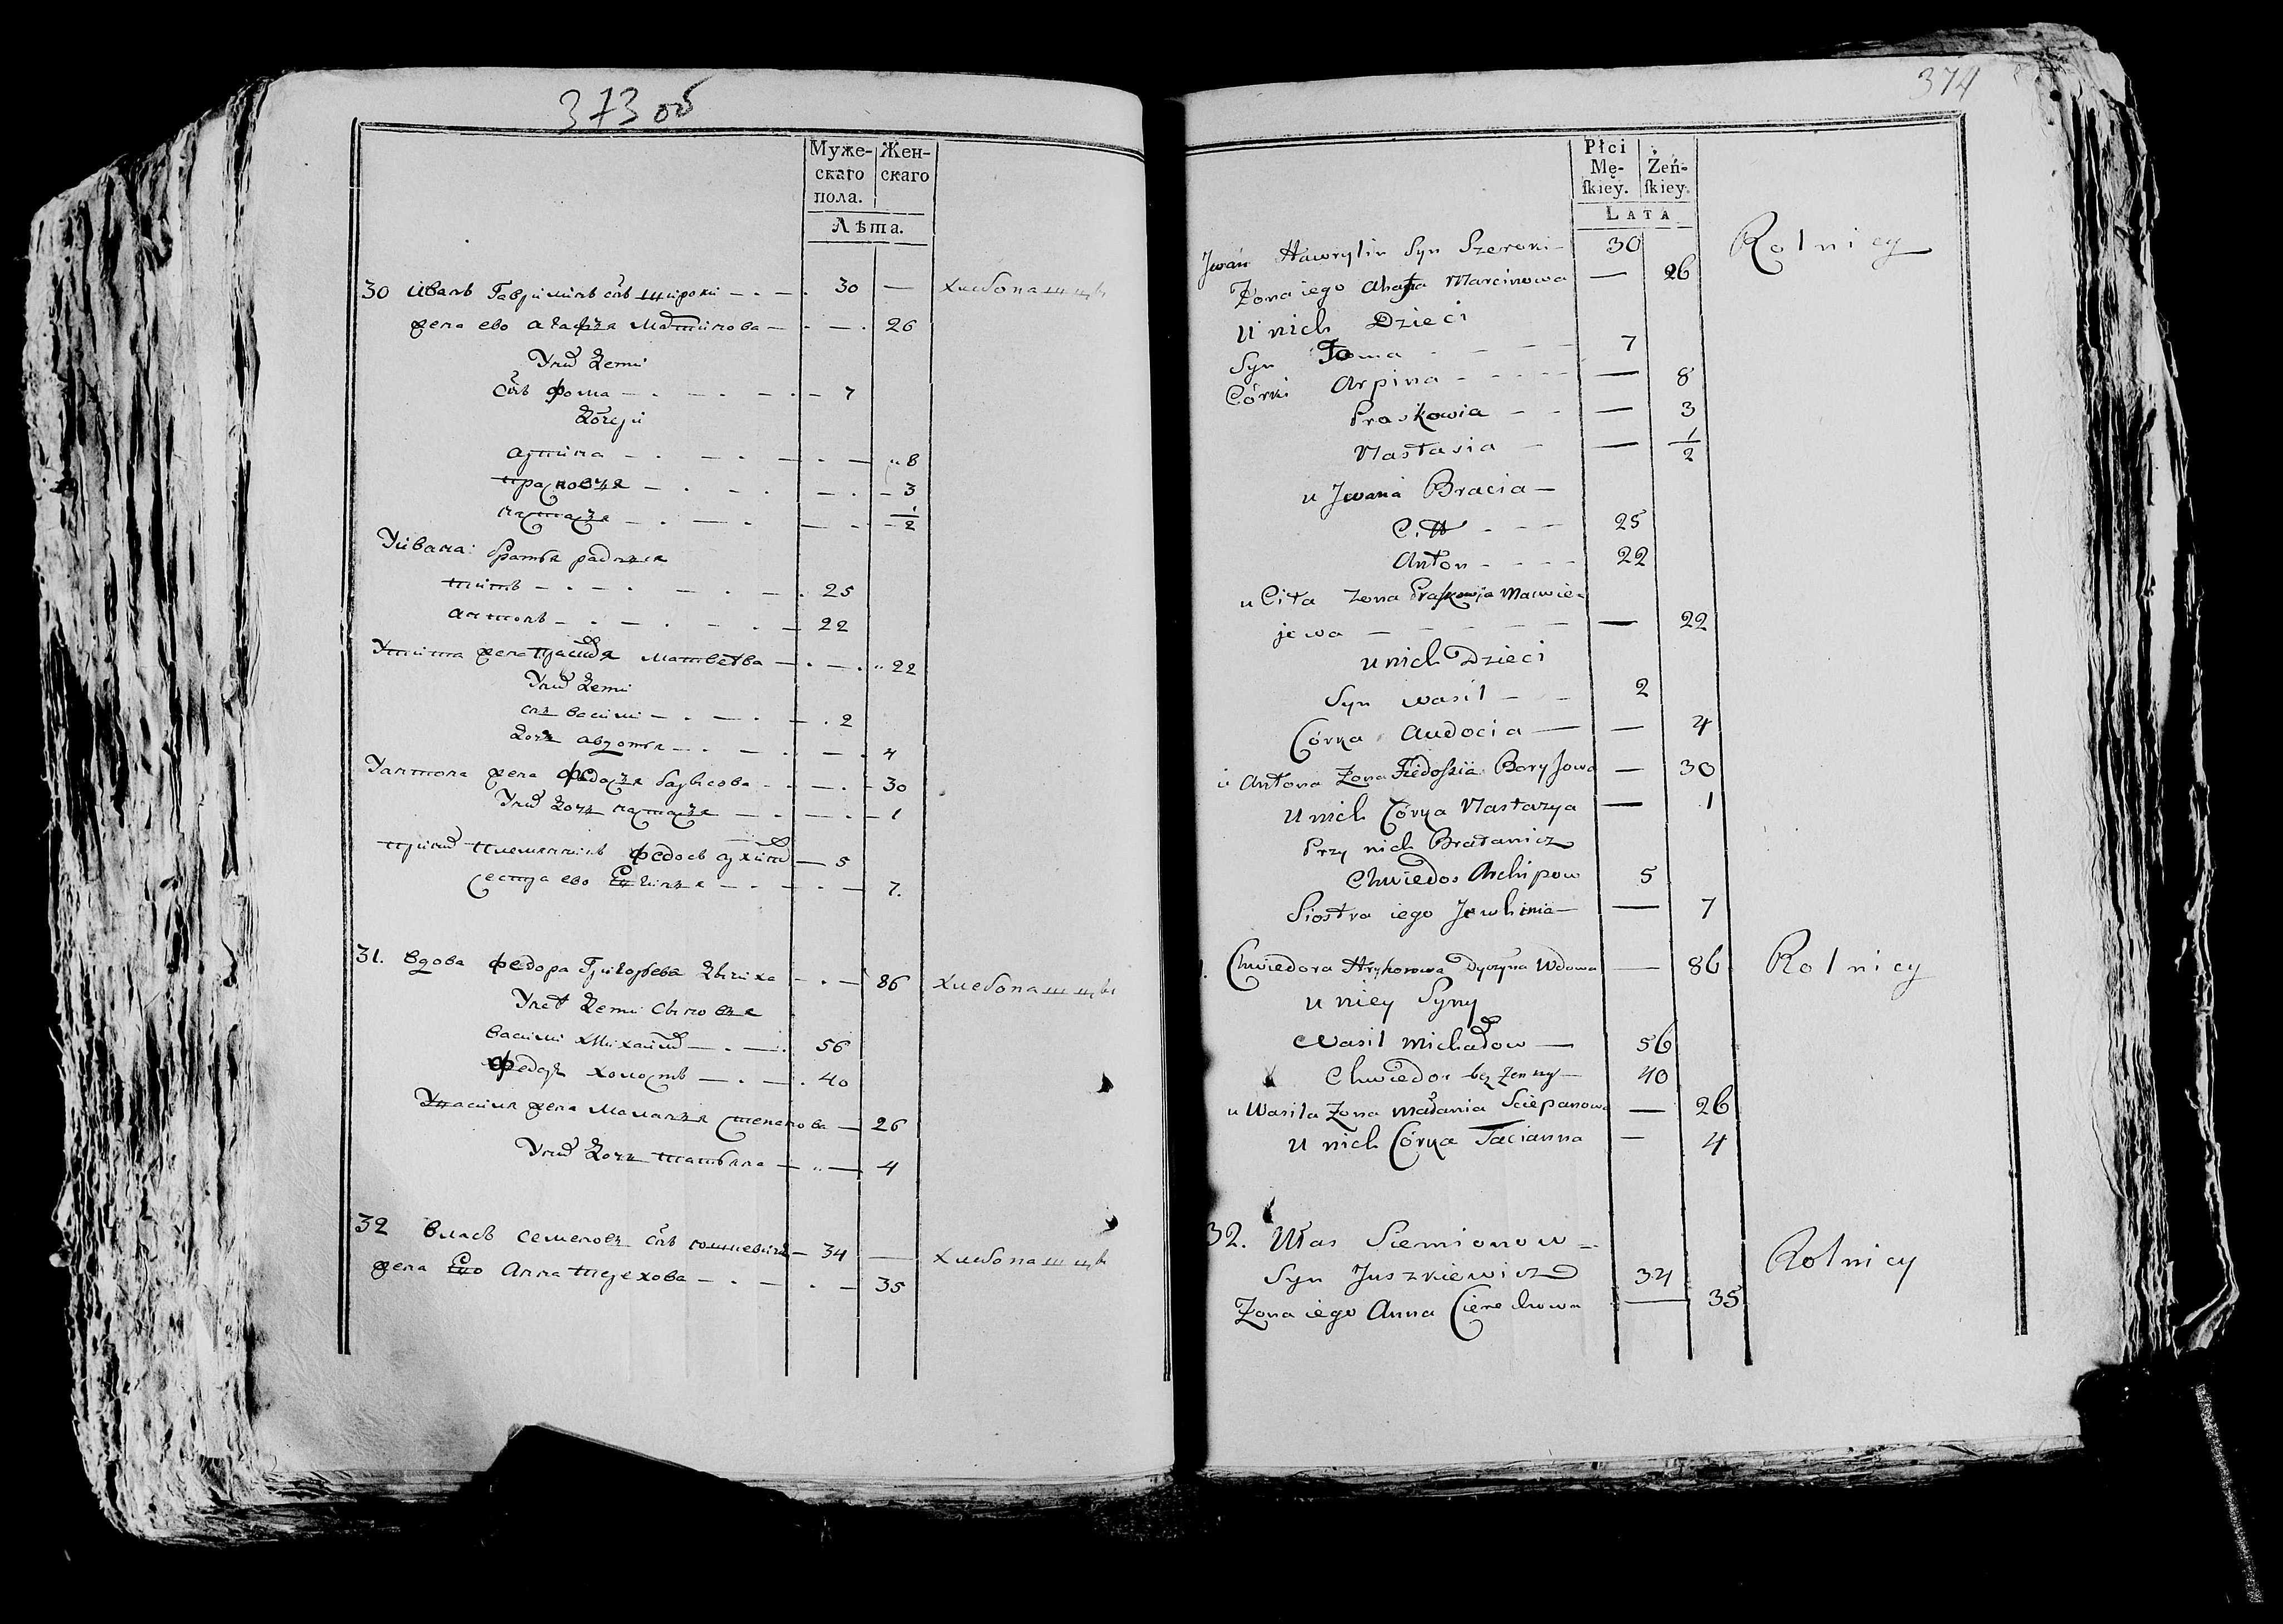 373 об
Муже-
скаго
пола.
Жен-
скаго
Лѣта.
30 иванъ Гавриилъ снъ широки 30 — хлебопашцы
жена ево агафия Мартинова 26
У них дети
снъ фома 7
дочери
арпина 8
прасковия 3
настасия 1/2
У ивана братья родныя
титъ 25
антонъ 22
У тита жена матвеева 22
У них дети
снъ васили 2
дочь авдотья 4
У антона жена федосия барысова 30
У них дочь настасия 1
при них племянникъ федосъ архипов 5
сестра ево 7.
31. вдова федора Григорьева 86 хлебопашцы
У неѣ дети сыновья
васили Михайлов 56
федор холостъ 40
У василя жена Малания степанова 26
У них дочь татьяна 4
32 власъ семенов снъ 34 — хлебопашцы
жена ево Анна терехова 35
374
Płci
Mę-
ſkiey.
Żeń-
ſkiey.
LATA
Jwan Hawrylin Syn Szeroki 30 Rolnicy
Żona iego Ahafia Marcinowa — 26
U nich Dzieci
Syn Foma 7
Córki Arpina — 8
Praskowia — 3
Nastasia — 1/2
u Jwana Bracia —
Citt 25
Anton 22
u Cita żona Praskowja Macwie-
jewa — 22
u nich Dzieci
Syn wasil 2
Córka Audocia — 4
u Antona Żona Fiedosia Borysowa — 30
U nich Córka Nastazya — 1
Przy nich Bratanicz
Chwiedos Archipow 5
Siostra iego Jewhinia — 7
Chwiedora Hryhorowa Dyczyna Wdowa — 86 Rolnicy
u niey Syny
Wasil Michałow — 56
Chwiedor bez żenny 40
u Wasila Żona Małania Sciepanowa — 26
U nich Córka Tacianna — 4
32. Własˊ Siemionow
Syn Juszkiewicz 34 Rolnicy
Żona iego Anna Cierechowa — 35